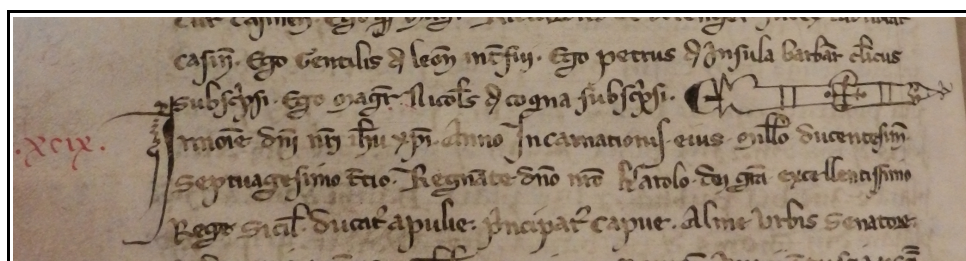 Casiñ. Ego Gentilis d̉ leoñ int̄fui. Ego petrus d̉ Insula barbar̉ cl̉icus
Subsc̉psi. Ego mag̃r Nicol̉s d̉ cogna subsc̉psi.
.xcix. In noīe dñi nr̃i ih̃u xp̃i. Anno Incarnationis eius. mill̃o ducentesim̃
Septuagesimo t̃cio. Regnãte dño nr̃o Karolo. dei gr̃a excellentissimo
Rege Sicil̃. ducat̉ apulie. p̉ncipat̉ Capue. Alme Urbis Senatore.